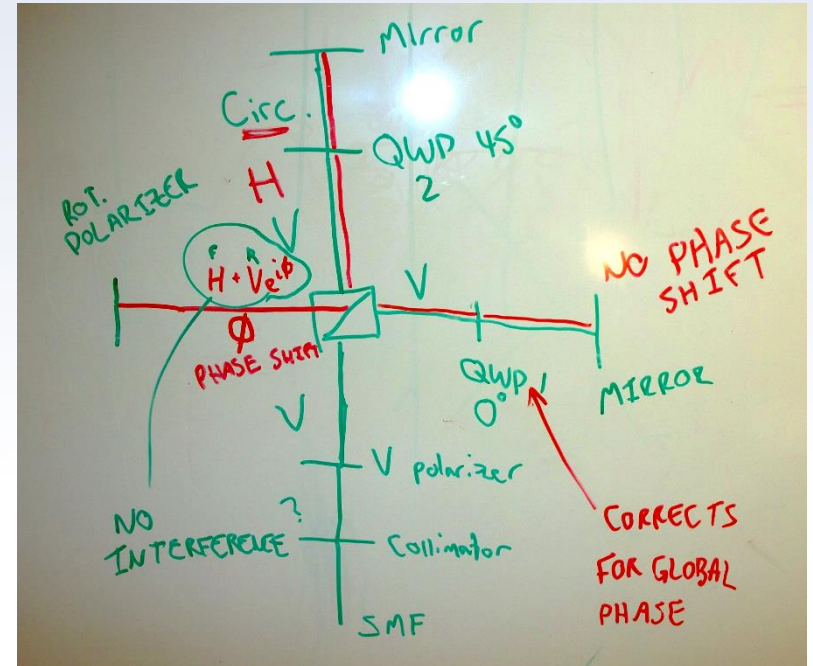 Mirror
Circ.
QWP 45°
2
H
ROT.
POLARIZER
V
F R
H + Ve^{iϕ}
NO PHASE
SHIFT
V
ϕ
PHASE SHIFT
QWP 1
0°
MIRROR
V
V polarizer
NO
INTERFERENCE ?
Collimator
CORRECTS
FOR GLOBAL
PHASE
SMF